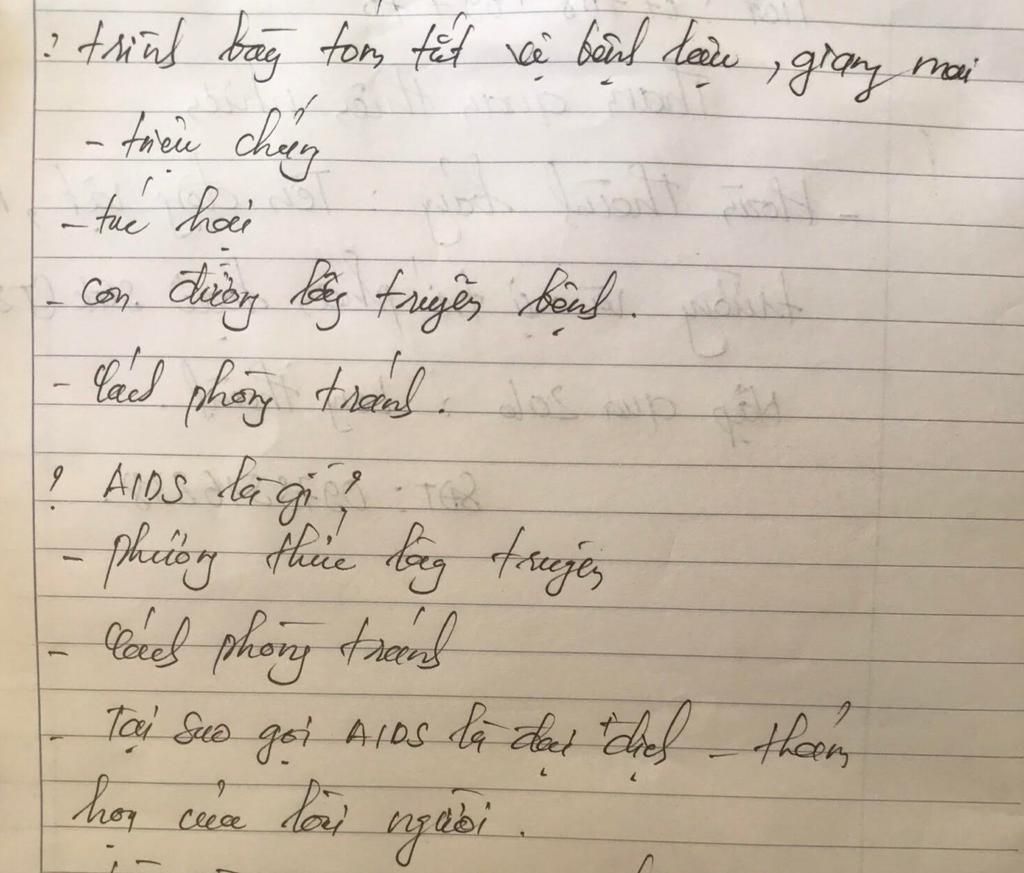 ? trình bày tóm tắt về bệnh lậu, giang mai
- triệu chứng
- tác hại
- con đường lây truyền bệnh.
- Cách phòng tránh.
? AIDS là gì?
- phương thức lây truyền
- Cách phòng tránh
- Tại sao gọi AIDS là đại dịch - thảm
họa của loài người.